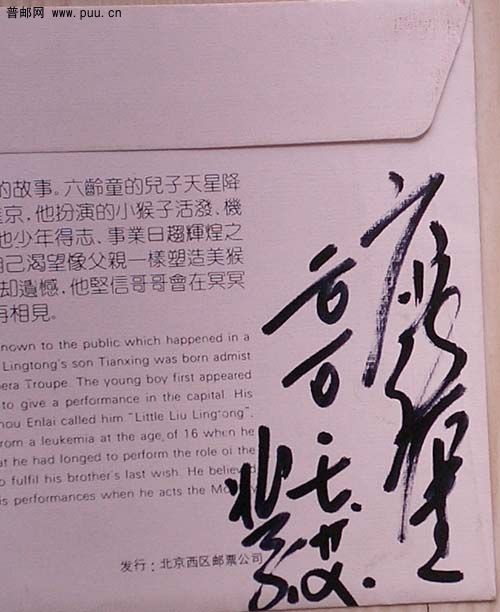 普邮网
www.puu.cn
的故事。六齡童的兒子天星降
京，他扮演的小猴子活發、機
他少年得志、事業日趨輝煌之
自己渴望像父親一樣塑造美猴
却遺憾，他堅信哥哥會在冥冥
再相見。
nown to the public which happened in a
Lingtong's son Tianxing was born admist
era Troupe. The young boy first appeared
to give a performance in the capital. His
hou Enlai called him "Little Liu Lingtong".
rom a leukemia at the age of 16 when he
at he had longed to perform the role of the
o fulfil his brother's last wish. He believed
is performances when he acts the Mo
发行：北京西区邮票公司